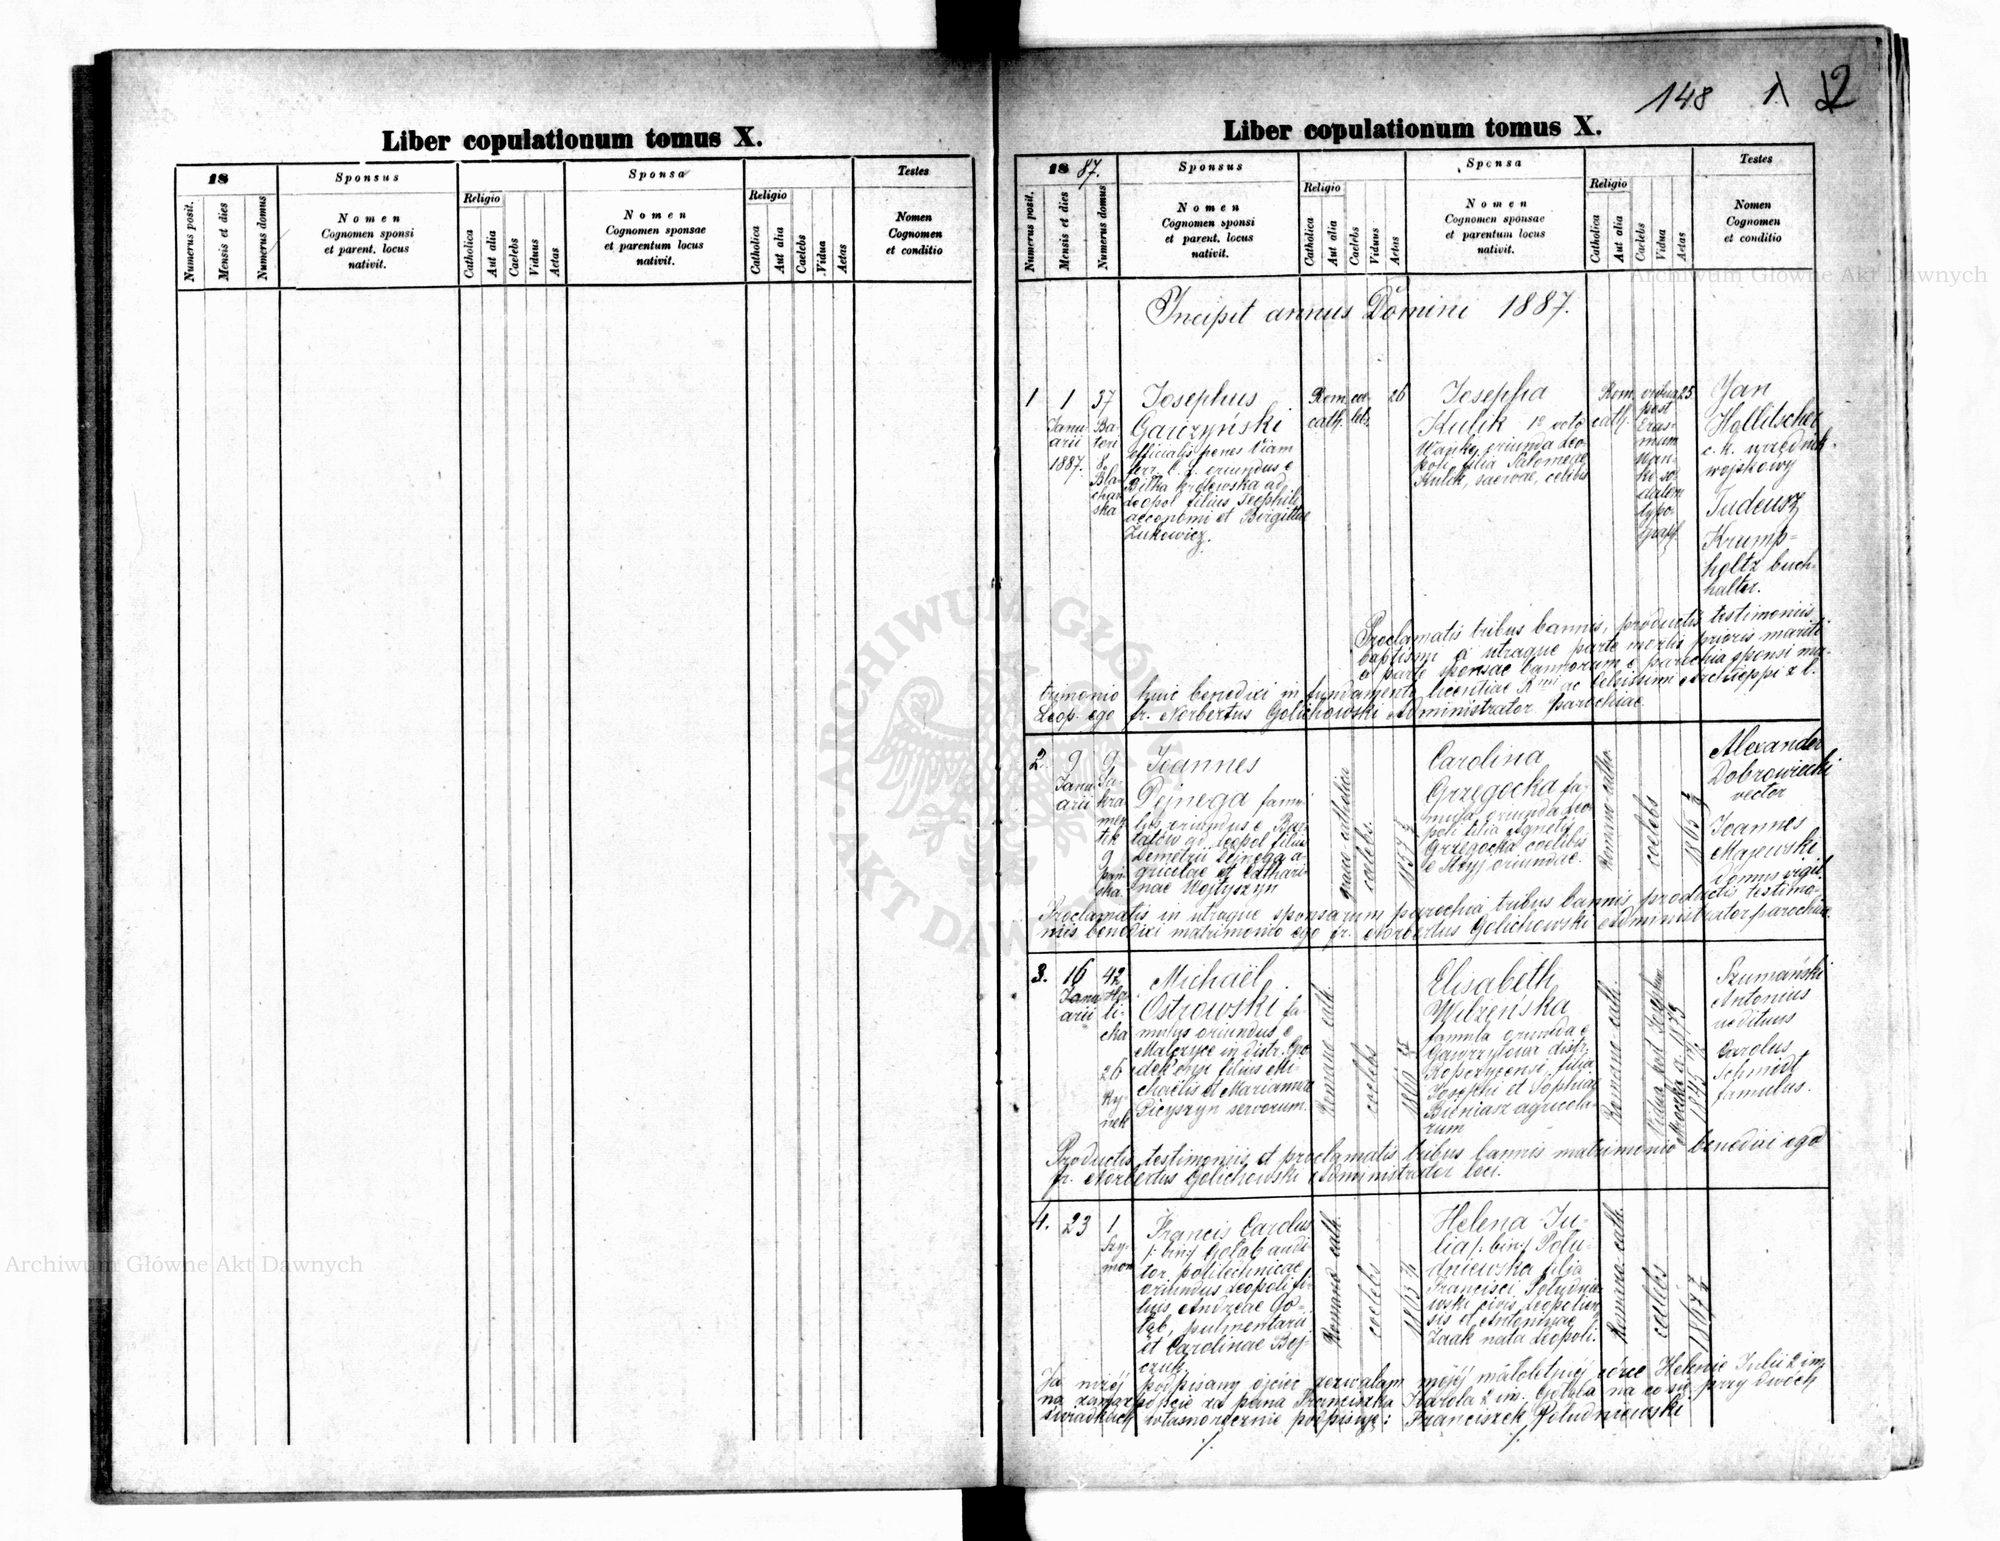 148 1. 2
Liber copulationum tomus X.
18
Sponsus
Sponsa
Testes
Religio
Religio
Numerus posit.
Mensis et dies
Numerus domus
Nomen
Cognomen sponsi
et parent. locus
nativit.
Catholica
Aut alia
Caelebs
Viduus
Aetas
Nomen
Cognomen sponsae
et parentum locus
nativit.
Catholica
Aut alia
Caelebs
Vidua
Aetas
Nomen
Cognomen
et conditio
Liber copulationum tomus X.
1887.
Sponsus
Sponsa
Testes
Religio
Religio
Numerus posit.
Mensis et dies
Numerus domus
Nomen
Cognomen sponsi
et parent. locus
nativit.
Catholica
Aut alia
Caelebs
Viduus
Aetas
Nomen
Cognomen sponsae
et parentum locus
nativit.
Catholica
Aut alia
Caelebs
Vidua
Aetas
Nomen
Cognomen
et conditio
Incipit annus Domini 1887.
1
1
Janu
arii
1887.
37
Ba-
tori
8
Bla-
char
ska
Josephus
Garczyński
officialis penes viam
ferr. C. L. oriundus e
Biłka królewska ad
Leopol filius Theophili
oeconomi et Birgittae
Zukowicz.
Rom.
cath.
cae-
lebs
26
Josepha
Kulik 1º voto
Wańke, oriunda Leo-
poli filia Salomeae
Kulik, caelebis
Rom.
cath.
vidua
post
Eras-
mum
Wań-
ke so-
dalem
typo-
graph.
25
Jan
Hollitscher
c. k. urzędnik
wojskowy
Tadeusz
Krump-
holtz buch-
halter.
Proclamatis tribus bannis, productis testimoniis
baptismi a utraque parte mortis prioris mariti
a parte sponsae bannorum e parochia sponsi ma-
trimonio huic benedixi in fundamento licentiae Rmi ac Celsissimi Archieppi r. l.
Leop. ego fr. Norbertus Golichowski Administrator parochiae.
2.
9
Janu
arii
9
Sa-
kra
men
tek
9
pań-
ska.
Joannes
Dejnega famu-
lus oriundus e Bar-
tatów ad Leopol filius
Demetrii Dejnega a-
gricolae et Cathari-
nae Wojtyszyn
graeco-catholica
caelebs.
1857
Carolina
Grzegocka fa-
mula oriunda Leo-
poli filia Agnetis
Grzegocka coelibis
e Stryj oriundae.
Romano-catho.
coelebs
1865
Alexander
Dobrowiecki
vector
Joannes
Majewski
Domus vigil.
Proclamatis in utraque sponsarum parochia tribus bannis productis testimo-
niis benedixi matrimonio ego fr. Norbertus Golichowski Administrator parochiae.
3.
16
Janu
arii
42
Ha-
li-
cka
26
Ry-
nek
Michaël
Ostrowski fa-
mulus oriundus e
Malczyce in distr. Gro-
dek filius Mi-
chaëlis et Mariannae
Dicyszyn servorum.
Romano cath.
coelebs
1860
Elisabeth
Wilzeńska
famula oriunda e
Gawrzyłowa distr.
Ropczycensi, filia
Josephi et Sophiae
Bieniasz agricola-
rum
Romano cath.
Vidua post Josephum
a. 1873
1845
Szumański
Antonius
aedituus
Carolus
Schmidt
famulus.
Productis testimoniis et proclamatis tribus bannis matrimonio benedixi ego
fr. Norbertus Golichowski Administrator loci.
4.
23
1
Szy-
mon
Francis. Carolus
/: bin:/ Gołąb audi-
tor politechnicae
oriundus Leopoli fi-
lius Andreae Go-
łąb, pulmentarii
et Carolinae Boj-
czuk.
Romano cath.
coelebs
1863
Helena Ju-
lia /: bin:/ Połu-
dniewska filia
Francisci Południe-
wski civis Leopolien-
sis et Antoninae
Żaak nata Leopoli.
Romano cath.
coelebs
1867
Ja niżéj podpisany ojciec zezwalam mojéj małoletniéj córce Helenie Julii 2 im.
na zamążpójście za pana Franciszka Karola 2 im. Gołąba na co się przy dwóch
świadkach własnoręcznie podpisuję: Franciszek Południewski
Archiwum Główne Akt Dawnych
Archiwum Główne Akt Dawnych
ARCHIWUM GŁÓWNE AKT DAWNYCH